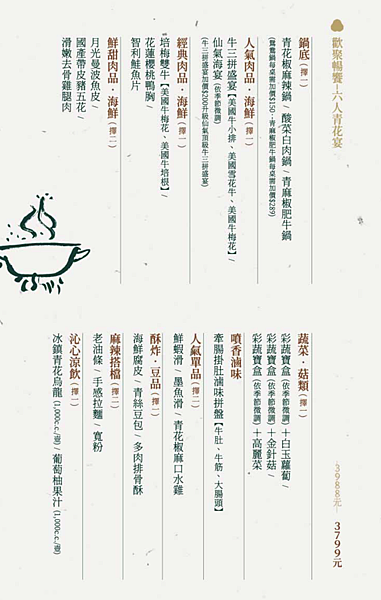 歡聚暢饗—六人青花宴
3988元
3799元
鍋底（擇一）
青花椒麻辣鍋 / 酸菜白肉鍋 / 青麻椒肥牛鍋
(鴛鴦鍋每桌需加價$150；青麻椒肥牛鍋每桌需加價$289)
人氣肉品・海鮮（擇一）
牛三拼盛宴【美國牛小排、美國雪花牛、美國牛梅花】/
仙氣海宴 (依季節微調)
(牛三拼盛宴加價$200升級仙氣頂級牛三拼盛宴)
經典肉品・海鮮（擇一）
培梅雙牛【美國牛梅花、美國牛培根】/
花蓮櫻桃鴨胸 /
智利鮭魚片
鮮甜肉品・海鮮（擇二）
月光曼波魚皮 /
國產帶皮豬五花 /
滑嫩去骨雞腿肉
蔬菜・菇類（擇一）
彩蔬寶盒 (依季節微調) ＋白玉蘿蔔 /
彩蔬寶盒 (依季節微調) ＋金針菇 /
彩蔬寶盒 (依季節微調) ＋高麗菜
噴香滷味
牽腸掛肚滷味拼盤【牛肚、牛筋、大腸頭】
人氣單品（擇二）
鮮蝦滑 / 墨魚滑 / 青花椒麻口水雞
酥炸・豆品（擇二）
海鮮腐皮 / 青絲豆包 / 多肉排骨酥
麻辣搭檔（擇二）
老油條 / 手感拉麵 / 寬粉
沁心涼飲（擇一）
冰鎮青花烏龍 (1,000c.c./壺) / 葡萄柚果汁 (1,000c.c./壺)